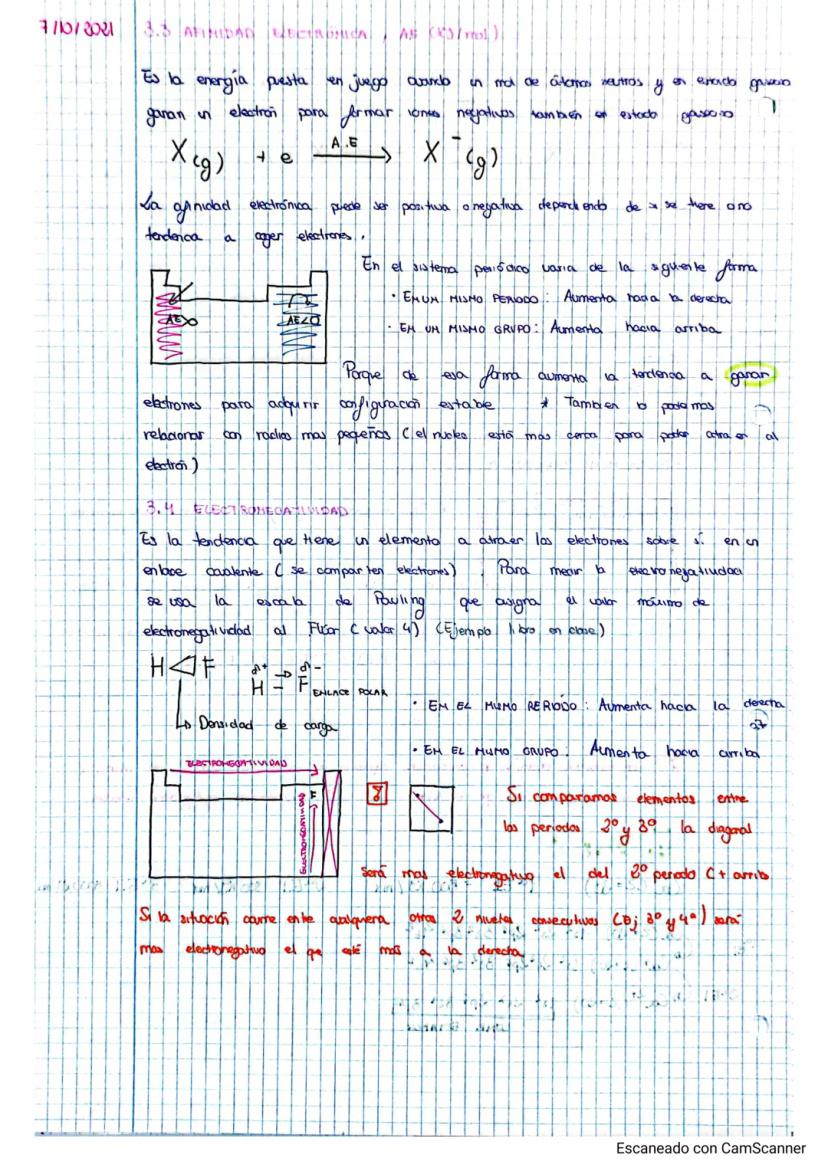 7/10/2021
3.3 AFINIDAD ELECTRÓNICA, AE (KJ/mol)
Es la energía puesta en juego cuando un mol de átomos neutros y en estado gaseoso
ganan un electrón para formar iones negativos también en estado gaseoso
X(g) + e A.E → X⁻(g)
La afinidad electrónica puede ser positiva o negativa dependiendo de si se tiene o no
tendencia a coger electrones.
En el sistema periódico varia de la siguiente forma
· EN UN MISMO PERIODO: Aumenta hacia la derecha
· EN UN MISMO GRUPO: Aumenta hacia arriba
AE>0
AE<0
Porque de esa forma aumenta la tendencia a ganar
electrones para adquirir configuración estable * Tambien lo podemos
relacionar con radios mas pequeños (el nucleo está mas cerca para poder atraer al
electrón)
3.4 ELECTRONEGATIVIDAD
Es la tendencia que tiene un elemento a atraer los electrones sobre sí en un
enlace covalente (se comparten electrones). Para medir la electronegatividad
se usa la escala de Pauling que asigna el valor máximo de
electronegatividad al Flúor (valor 4) (Ejemplo libro en clase)
H F
δ+ → δ-
H - F ENLACE POLAR
↳ Densidad de carga
· EN EL MISMO PERIODO: Aumenta hacia la derecha
· EN EL MISMO GRUPO: Aumenta hacia arriba
ELECTRONEGATIVIDAD
F
ELECTRONEGATIVIDAD
Si comparamos elementos entre
los periodos 2º y 3º la diagonal
será mas electronegativo el del 2º periodo (+ arriba
Si la situación ocurre entre cualquiera otros 2 niveles consecutivos (Ej 3º y 4º) será
mas electronegativo el que esté más a la derecha
Escaneado con CamScanner